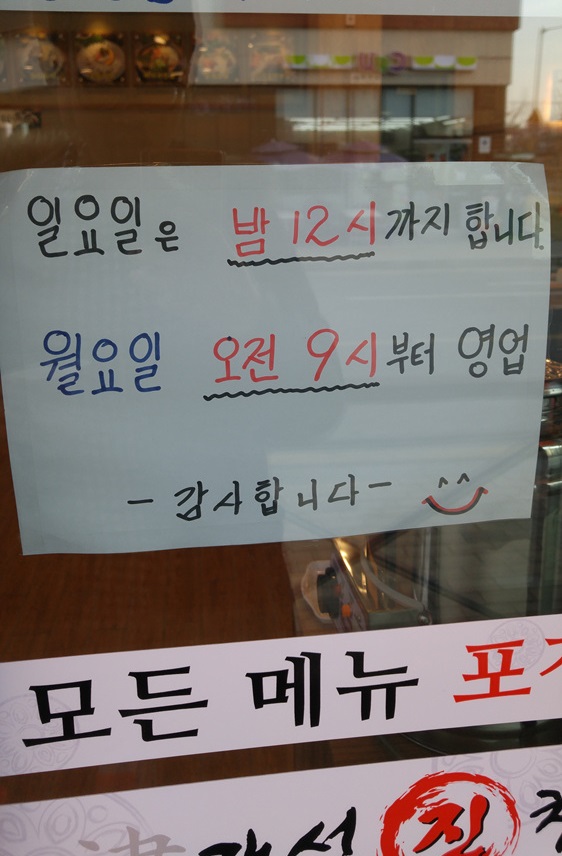 일요일은 밤 12시까지 합니다.
월요일 오전 9시부터 영업
- 감사합니다 -
모든 메뉴 포